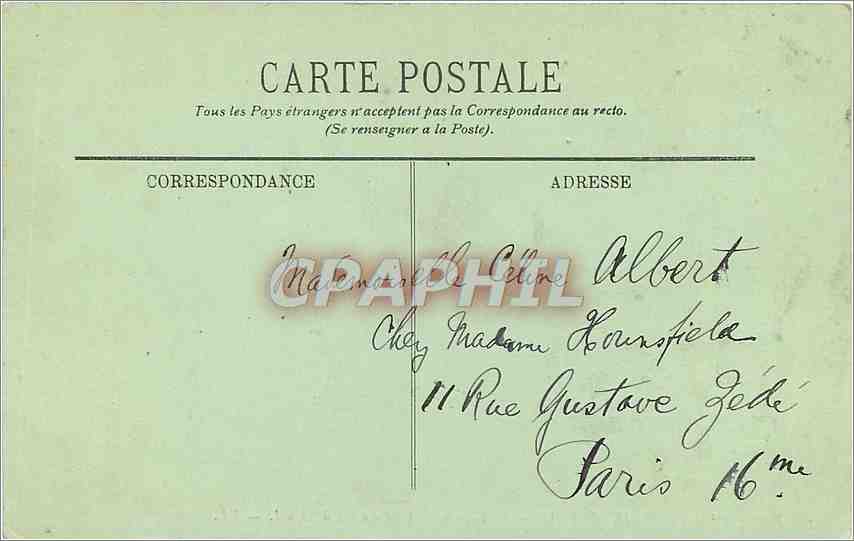 CARTE POSTALE
Tous les Pays étrangers n'acceptent pas la Correspondance au recto.
(Se renseigner a la Poste).
CORRESPONDANCE
ADRESSE
Mademoiselle Céline Albert
CPAPHIL
Chez Madame Hounsfield
11 Rue Gustave Zédé
Paris 16me.